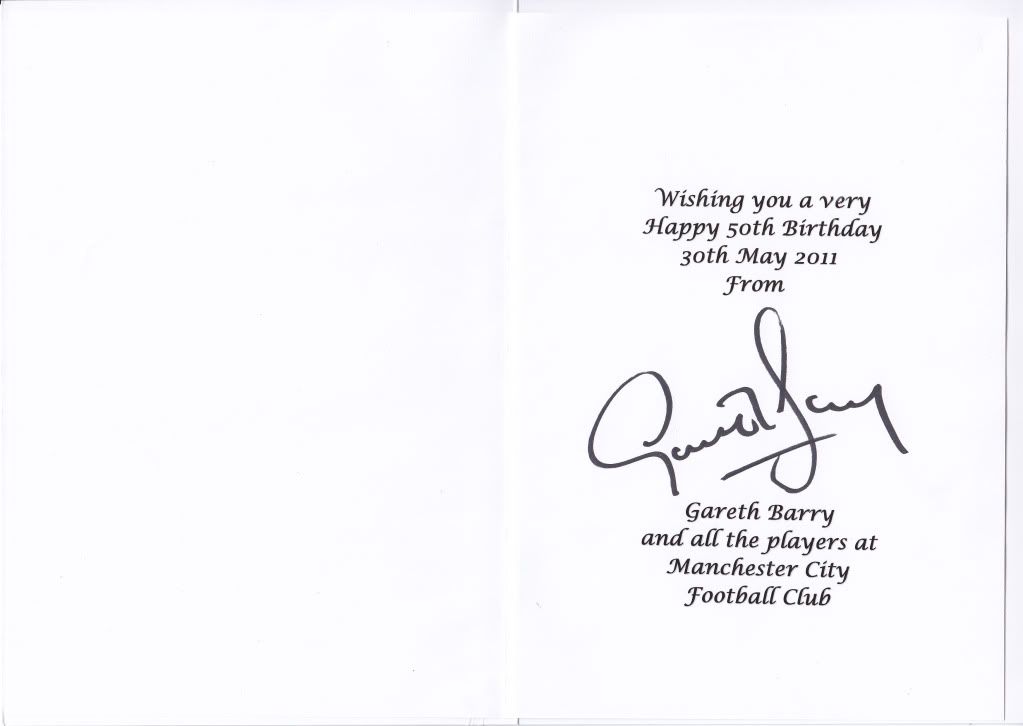 Wishing you a very
Happy 50th Birthday
30th May 2011
From
Gareth Barry
Gareth Barry
and all the players at
Manchester City
Football Club